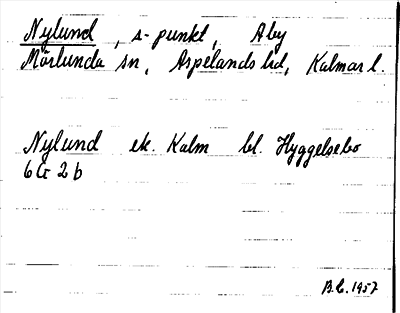 Nylund, s-punkt, Åby
Mörlunda sn, Aspelands hd, Kalmar l.
Nylund ek. Kalm bl. Hyggelsebo
6 G 2 b
B.L. 1957